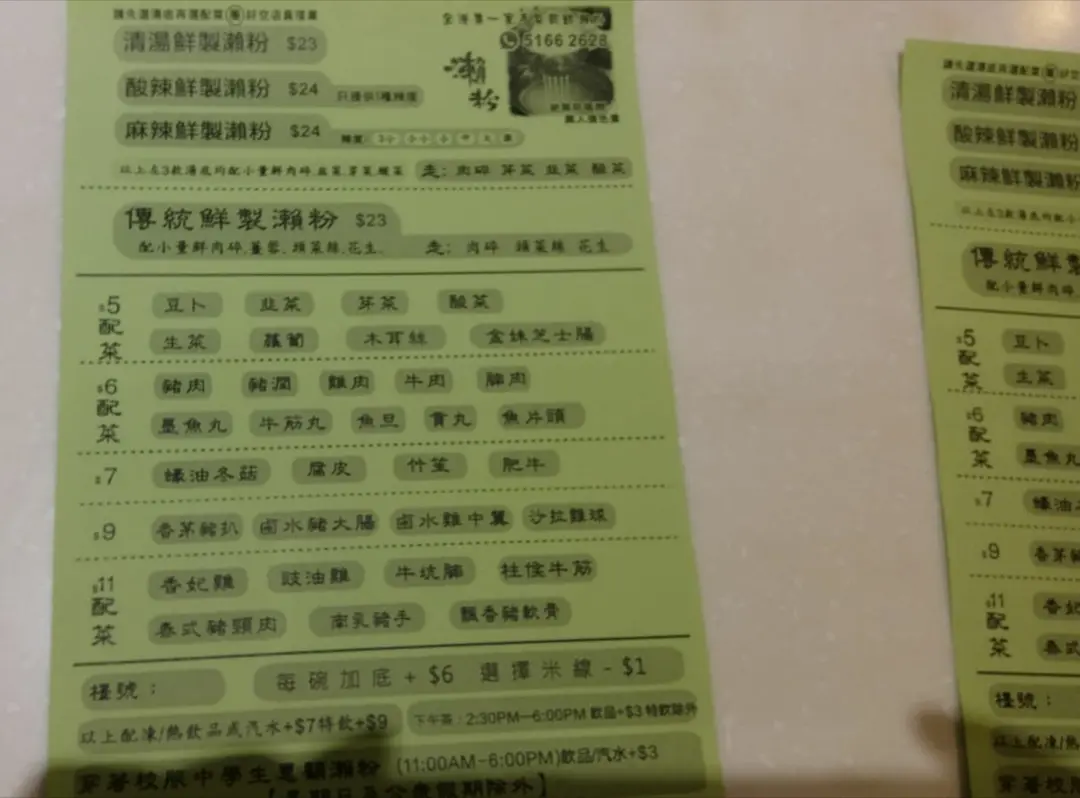 請先選湯底再選配菜
清湯鮮製瀨粉 $23
酸辣鮮製瀨粉 $24
麻辣鮮製瀨粉 $24
5166 2628
瀨粉
以上左3款湯底均配小量鮮肉碎.韭菜.芽菜.酸菜 走: 肉碎 芽菜 韭菜 酸菜
傳統鮮製瀨粉 $23
配小量鮮肉碎.薑蓉.頭菜絲.花生. 走: 肉碎 頭菜絲 花生
$5配菜 豆卜 韭菜 芽菜 酸菜
生菜 蘿蔔 木耳絲 金妹芝士腸
$6配菜 豬肉 豬潤 雞肉 牛肉 腩肉
墨魚丸 牛筋丸 魚旦 貢丸 魚片頭
$7 蠔油冬菇 腐皮 竹笙 肥牛
$9 香茅豬扒 鹵水豬大腸 鹵水雞中翼 沙拉雞球
$11配菜 香妃雞 豉油雞 牛坑腩 柱侯牛筋
泰式豬頸肉 南乳豬手 飄香豬軟骨
檯號：
每碗加底+$6 選擇米線-$1
以上配凍/熱飲品或汽水+$7特飲+$9
下午茶：2:30PM—6:00PM 飲品+$3 特飲除外
穿著校服中學生惠顧瀨粉 (11:00AM-6:00PM)飲品/汽水+$3
【星期日及公眾假期除外】
清湯鮮製瀨粉
酸辣鮮製瀨粉
麻辣鮮製瀨粉
傳統鮮製
配小量鮮肉碎
$5配菜 豆卜
生菜
$6配菜 豬肉
墨魚丸
$7 蠔油
$9 香茅
$11配菜 香妃
泰式
檯號：
以上配凍/熱
穿著校服